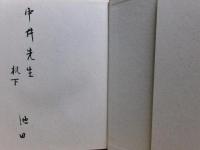 中井先生
机下
池田